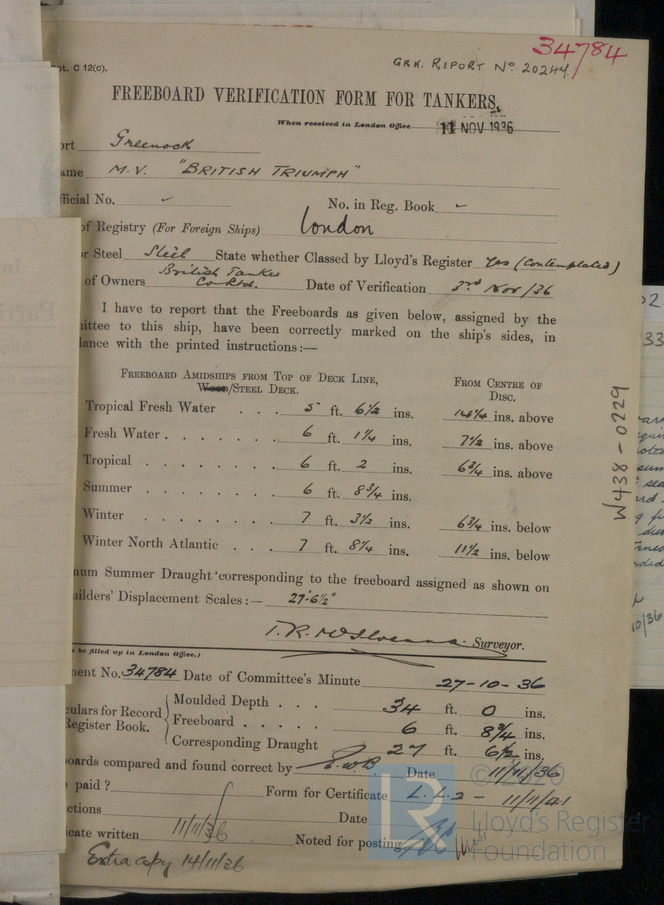 34784
pt. C 12(c).
GRK. REPORT No 20244.
FREEBOARD VERIFICATION FORM FOR TANKERS.
When received in London Office 11 NOV 1936
ort Greenock
ame M.V. "BRITISH TRIUMPH"
fficial No. No. in Reg. Book
of Registry (For Foreign Ships) London
or Steel Steel State whether Classed by Lloyd's Register Yes (Contemplated)
of Owners British Tanker Co Ltd. Date of Verification 3rd Nov/36
I have to report that the Freeboards as given below, assigned by the
ittee to this ship, have been correctly marked on the ship's sides, in
lance with the printed instructions:—
FREEBOARD AMIDSHIPS FROM TOP OF DECK LINE,
WOOD/STEEL DECK.
FROM CENTRE OF
DISC.
Tropical Fresh Water . . . 5 ft. 6½ ins. 14¼ ins. above
Fresh Water . . . . . . . 6 ft. 1¼ ins. 7½ ins. above
Tropical . . . . . . . . 6 ft. 2 ins. 6¾ ins. above
Summer . . . . . . . . 6 ft. 8¾ ins.
Winter . . . . . . . . 7 ft. 3½ ins. 6¾ ins. below
Winter North Atlantic . . . 7 ft. 8¼ ins. 11½ ins. below
num Summer Draught corresponding to the freeboard assigned as shown on
uilders' Displacement Scales:— 27'-6½"
Surveyor.
be filled up in London Office.)
ment No. 34784 Date of Committee's Minute 27-10-36
culars for Record
Register Book.
Moulded Depth . . . 34 ft. 0 ins.
Freeboard . . . . . 6 ft. 8¾ ins.
Corresponding Draught 27 ft. 6½ ins.
oards compared and found correct by E.W.B Date 11/11/36
paid? Form for Certificate L.L.2 - 11/11/41
ctions Date
icate written 11/11/36 Noted for posting
Extra copy 14/11/36
W438-0229
© 2020
Lloyd's Register
Foundation